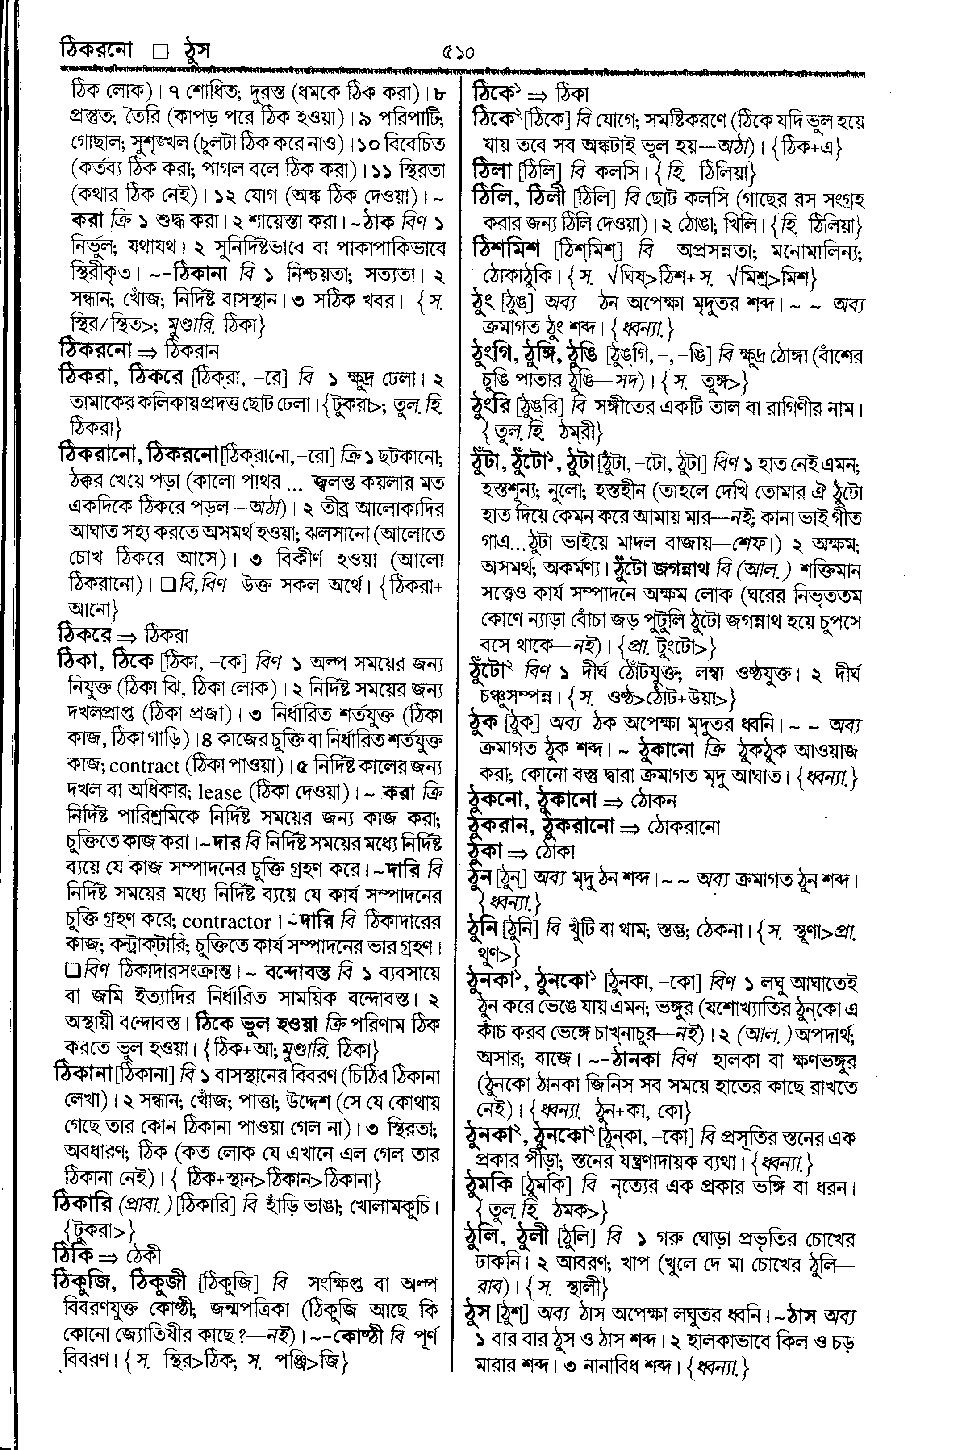 ঠিকরনো □ ঠুস
৫১০
ঠিক লোক)। ৭ শোধিত; দুরস্ত (ধমকে ঠিক করা)। ৮
প্রস্তুত; তৈরি (কাপড় পরে ঠিক হওয়া)। ৯ পরিপাটি;
গোছাল; সুশৃঙ্খল (চুলটা ঠিক করে নাও)। ১০ বিবেচিত
(কর্তব্য ঠিক করা; পাগল বলে ঠিক করা)। ১১ স্থিরতা
(কথার ঠিক নেই)। ১২ যোগ (অঙ্ক ঠিক দেওয়া)। ~
করা ক্রি ১ শুদ্ধ করা। ২ শায়েস্তা করা। ~ঠাক বিণ ১
নির্ভুল; যথাযথ। ২ সুনির্দিষ্টভাবে বা পাকাপাকিভাবে
স্থিরীকৃত। ~-ঠিকানা বি ১ নিশ্চয়তা; সত্যতা। ২
সন্ধান; খোঁজ; নির্দিষ্ট বাসস্থান। ৩ সঠিক খবর। {স.
স্থির/স্থিত>; মুণ্ডারি. ঠিকা}
ঠিকরনো ⇒ ঠিকরান
ঠিকরা, ঠিকরে [ঠিক্‌রা, –রে] বি ১ ক্ষুদ্র ঢেলা। ২
তামাকের কলিকায় প্রদত্ত ছোট ঢেলা। {টুকরা>; তুল. হি.
ঠিকরা}
ঠিকরানো, ঠিকরনো [ঠিক্‌রানো, –রো] ক্রি ১ ছটকানো;
ঠক্কর খেয়ে পড়া (কালো পাথর ... জ্বলন্ত কয়লার মত
একদিকে ঠিকরে পড়ল –অঠা)। ২ তীব্র আলোকাদির
আঘাত সহ্য করতে অসমর্থ হওয়া; ঝলসানো (আলোতে
চোখ ঠিকরে আসে)। ৩ বিকীর্ণ হওয়া (আলো
ঠিকরানো)। □ বি, বিণ উক্ত সকল অর্থে। {ঠিকরা+
আনো}
ঠিকরে ⇒ ঠিকরা
ঠিকা, ঠিকে [ঠিকা, –কে] বিণ ১ অল্প সময়ের জন্য
নিযুক্ত (ঠিকা ঝি, ঠিকা লোক)। ২ নির্দিষ্ট সময়ের জন্য
দখলপ্রাপ্ত (ঠিকা প্রজা)। ৩ নির্ধারিত শর্তযুক্ত (ঠিকা
কাজ, ঠিকা গাড়ি)। ৪ কাজের চুক্তি বা নির্ধারিত শর্তযুক্ত
কাজ; contract (ঠিকা পাওয়া)। ৫ নির্দিষ্ট কালের জন্য
দখল বা অধিকার; lease (ঠিকা দেওয়া)। ~ করা ক্রি
নির্দিষ্ট পারিশ্রমিকে নির্দিষ্ট সময়ের জন্য কাজ করা;
চুক্তিতে কাজ করা। ~দার বি নির্দিষ্ট সময়ের মধ্যে নির্দিষ্ট
ব্যয়ে যে কাজ সম্পাদনের চুক্তি গ্রহণ করে। ~দারি বি
নির্দিষ্ট সময়ের মধ্যে নির্দিষ্ট ব্যয়ে যে কার্য সম্পাদনের
চুক্তি গ্রহণ করে; contractor। ~দারি বি ঠিকাদারের
কাজ; কন্ট্রাক্‌টারি; চুক্তিতে কার্য সম্পাদনের ভার গ্রহণ।
□ বিণ ঠিকাদারসংক্রান্ত। ~ বন্দোবস্ত বি ১ ব্যবসায়ে
বা জমি ইত্যাদির নির্ধারিত সাময়িক বন্দোবস্ত। ২
অস্থায়ী বন্দোবস্ত। ঠিকে ভুল হওয়া ক্রি পরিণাম ঠিক
করতে ভুল হওয়া। {ঠিক+আ; মুণ্ডারি. ঠিকা}
ঠিকানা [ঠিকানা] বি ১ বাসস্থানের বিবরণ (চিঠির ঠিকানা
লেখা)। ২ সন্ধান; খোঁজ; পাত্তা; উদ্দেশ (সে যে কোথায়
গেছে তার কোন ঠিকানা পাওয়া গেল না)। ৩ স্থিরতা;
অবধারণ; ঠিক (কত লোক যে এখানে এল গেল তার
ঠিকানা নেই)। { ঠিক+স্থান>ঠিকান>ঠিকানা}
ঠিকারি (প্রাবা.) [ঠিকারি] বি হাঁড়ি ভাঙা; খোলামকুচি।
{টুকরা>}
ঠিকি ⇒ ঠেকী
ঠিকুজি, ঠিকুজী [ঠিকুজি] বি সংক্ষিপ্ত বা অল্প
বিবরণযুক্ত কোষ্ঠী; জন্মপত্রিকা (ঠিকুজি আছে কি
কোনো জ্যোতিষীর কাছে?—নই)। ~-কোষ্ঠী বি পূর্ণ
বিবরণ। {স. স্থির>ঠিক; স. পঞ্জি>জি}
ঠিকে১ ⇒ ঠিকা
ঠিকে২ [ঠিকে] বি যোগে; সমষ্টিকরণে (ঠিকে যদি ভুল হয়ে
যায় তবে সব অঙ্কটাই ভুল হয়—অঠা)। {ঠিক+এ}
ঠিলা [ঠিলি] বি কলসি। {হি. ঠিলিয়া}
ঠিলি, ঠিলী [ঠিলি] বি ছোট কলসি (গাছের রস সংগ্রহ
করার জন্য ঠিলি দেওয়া)। ২ ঠোঙা; খিলি। {হি. ঠিলিয়া}
ঠিশমিশ [ঠিশ্‌মিশ্‌] বি অপ্রসন্নতা; মনোমালিন্য;
ঠোকাঠুকি। {স. √ঘিষ্‌>ঠিশ+স. √মিশ্র>মিশ}
ঠুং [ঠুঙ] অব্য ঠন অপেক্ষা মৃদুতর শব্দ। ~ ~ অব্য
ক্রমাগত ঠুং শব্দ। {ধ্বন্যা.}
ঠুংগি, ঠুঙ্গি, ঠুঙি [ঠুঙ্‌গি, –, –ঙি] বি ক্ষুদ্র ঠোঙ্গা (বাঁশের
চুঙি পাতার ঠুঙি—সদ)। {স. তুঙ্গ>}
ঠুংরি [ঠুঙ্‌রি] বি সঙ্গীতের একটি তাল বা রাগিণীর নাম।
{তুল. হি. ঠমরী}
ঠুঁটা, ঠুঁটো১, ঠুটা [ঠুঁটা, –টো, ঠুটা] বিণ ১ হাত নেই এমন;
হস্তশূন্য; নুলো; হস্তহীন (তাহলে দেখি তোমার ঐ ঠুটো
হাত দিয়ে কেমন করে আমায় মার—নই; কানা ভাই গীত
গাএ...ঠুটা ভাইয়ে মাদল বাজায়—শেফ।) ২ অক্ষম;
অসমর্থ; অকর্মণ্য। ঠুঁটো জগন্নাথ বি (আল.) শক্তিমান
সত্ত্বেও কার্য সম্পাদনে অক্ষম লোক (ঘরের নিভৃততম
কোণে ন্যাড়া বোঁচা জড় পুটুলি ঠুটো জগন্নাথ হয়ে চুপসে
বসে থাকে—নই)। {প্রা. টুংটো>}
ঠুঁটো২ বিণ ১ দীর্ঘ ঠোঁটযুক্ত; লম্বা ওষ্ঠযুক্ত। ২ দীর্ঘ
চঞ্চুসম্পন্ন। {স. ওষ্ঠ>ঠোট+উয়া>}
ঠুক [ঠুক্‌] অব্য ঠক অপেক্ষা মৃদুতর ধ্বনি। ~ ~ অব্য
ক্রমাগত ঠুক শব্দ। ~ ঠুকানো ক্রি ঠুকঠুক আওয়াজ
করা; কোনো বস্তু দ্বারা ক্রমাগত মৃদু আঘাত। {ধ্বন্যা.}
ঠুকনো, ঠুকানো ⇒ ঠোকন
ঠুকরান, ঠুকরানো ⇒ ঠোকরানো
ঠুকা ⇒ ঠোকা
ঠুন [ঠুন্‌] অব্য মৃদু ঠন শব্দ। ~ ~ অব্য ক্রমাগত ঠুন শব্দ।
{ধ্বন্যা.}
ঠুনি [ঠুনি] বি খুঁটি বা থাম; স্তম্ভ; ঠেকনা। {স. স্থূণা>প্রা.
থুণ>}
ঠুনকা১, ঠুনকো১ [ঠুন্‌কা, –কো] বিণ ১ লঘু আঘাতেই
ঠুন করে ভেঙে যায় এমন; ভঙ্গুর (যশোখ্যাতির ঠুন্‌কো এ
কাঁচ করব ভেঙ্গে চাখনাচুর—নই)। ২ (আল.) অপদার্থ;
অসার; বাজে। ~-ঠানকা বিণ হালকা বা ক্ষণভঙ্গুর
(ঠুনকো ঠানকা জিনিস সব সময়ে হাতের কাছে রাখতে
নেই)। {ধ্বন্যা. ঠুন+কা, কো}
ঠুনকা২, ঠুনকো২ [ঠুন্‌কা, –কো] বি প্রসূতির স্তনের এক
প্রকার পীড়া; স্তনের যন্ত্রণাদায়ক ব্যথা। {ধ্বন্যা.}
ঠুমকি [ঠুম্‌কি] বি নৃত্যের এক প্রকার ভঙ্গি বা ধরন।
{তুল. হি. ঠমক>}
ঠুলি, ঠুলী [ঠুলি] বি ১ গরু ঘোড়া প্রভৃতির চোখের
ঢাকনি। ২ আবরণ; খাপ (খুলে দে মা চোখের ঠুলি—
রাব)। {স. স্থালী}
ঠুস [ঠুশ্‌] অব্য ঠাস অপেক্ষা লঘুতর ধ্বনি। ~ঠাস অব্য
১ বার বার ঠুস ও ঠাস শব্দ। ২ হালকাভাবে কিল ও চড়
মারার শব্দ। ৩ নানাবিধ শব্দ। {ধ্বন্যা.}